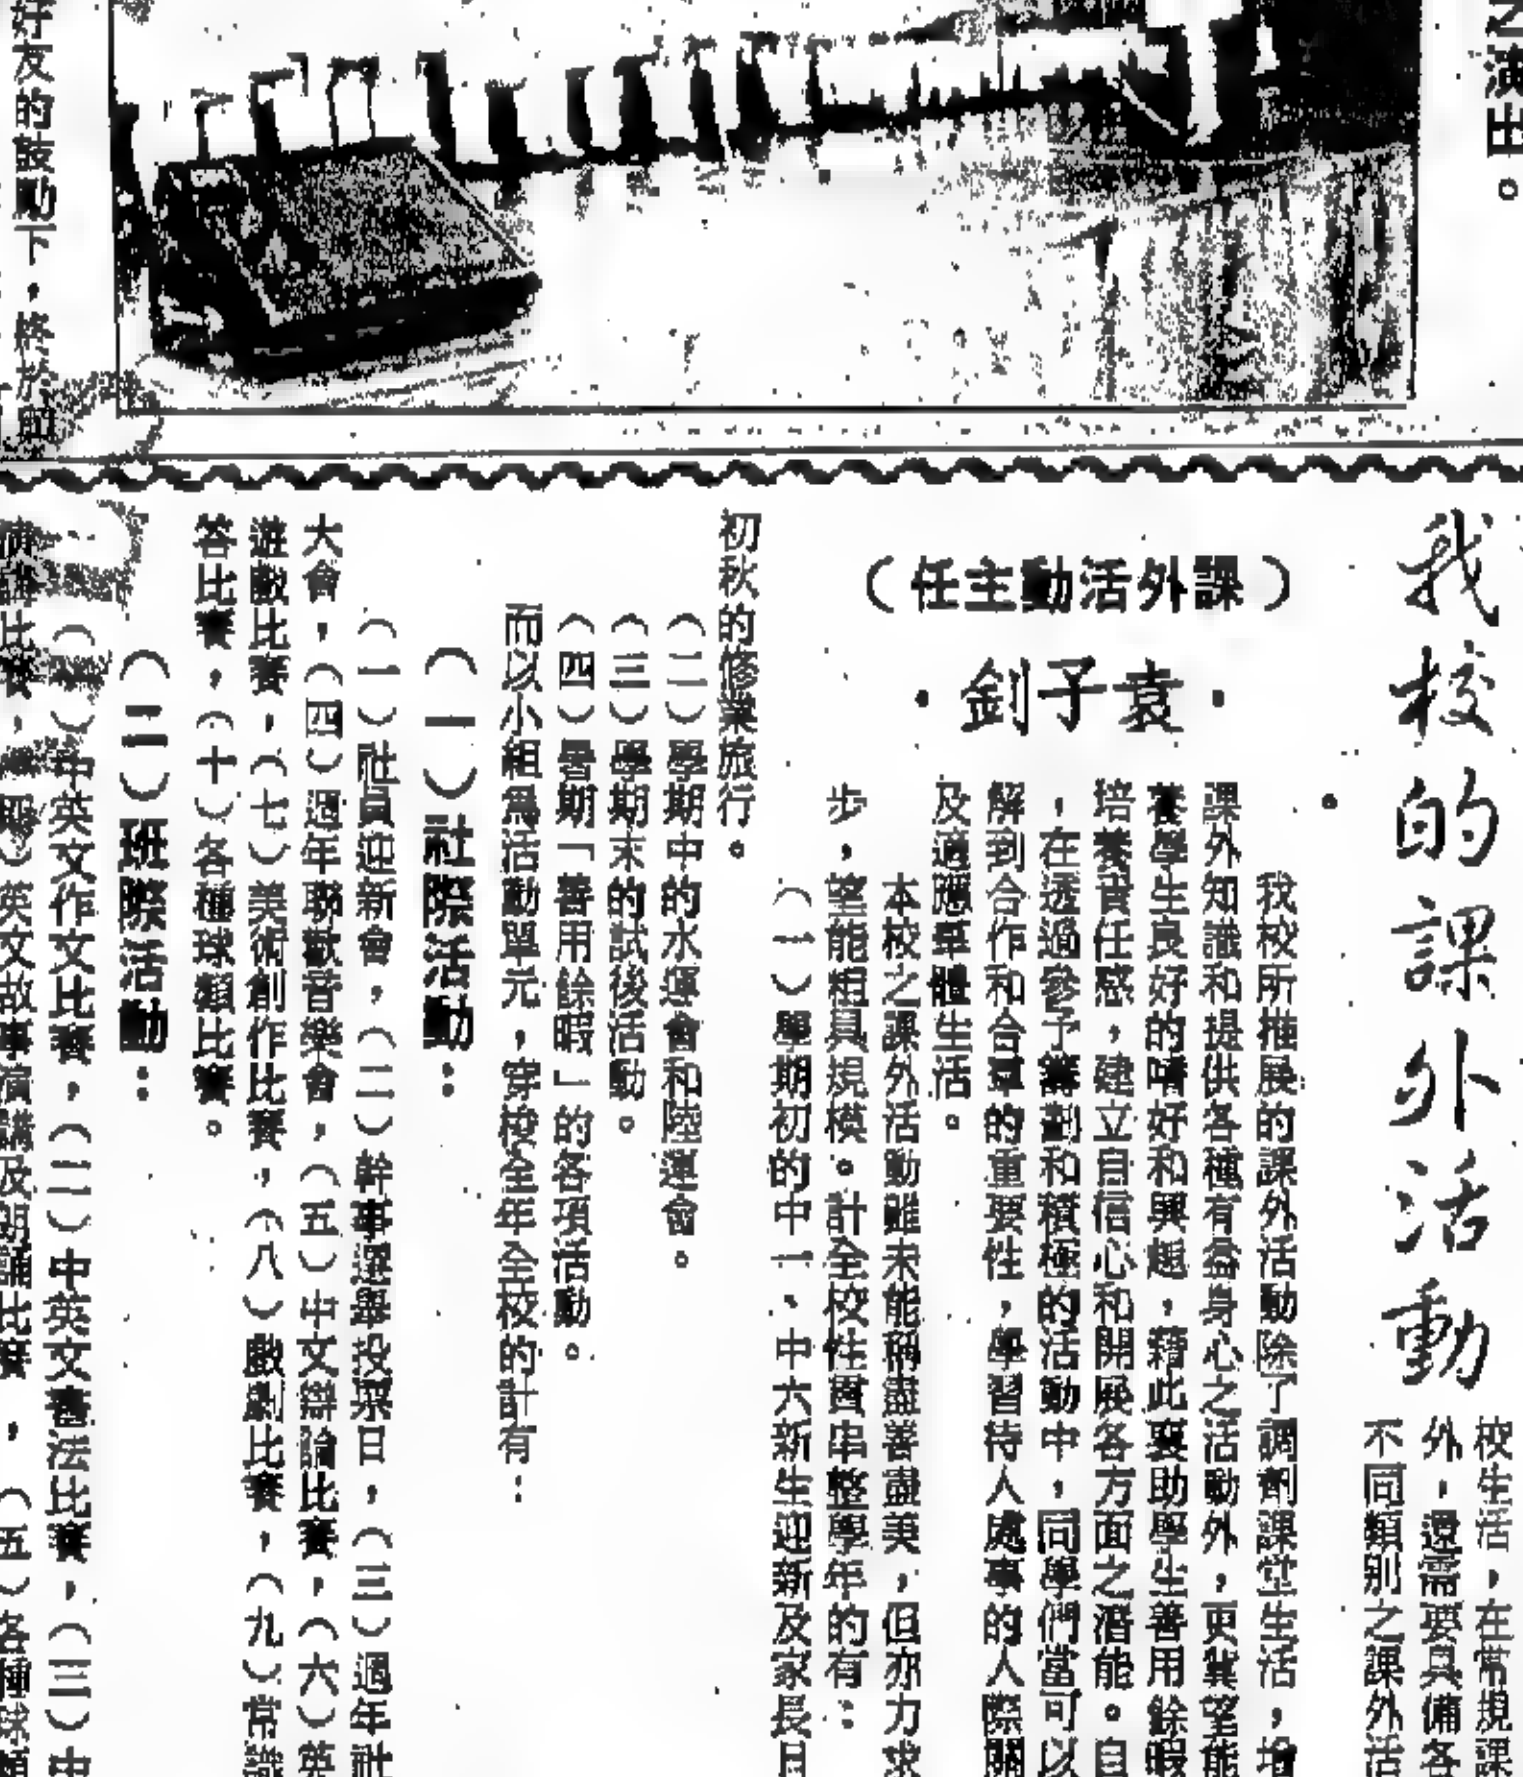 之演出。
我校的課外活動
(課外活動主任)
·袁子釗·
校生活，在常規課
外，還需要具備各
不同類別之課外活
。
我校所推展的課外活動除了調劑課堂生活，增
課外知識和提供各種有益身心之活動外，更冀望能
養學生良好的嗜好和興趣，藉此襄助學生善用餘暇
培養責任感，建立自信心和開展各方面之潛能。自
，在透過參予籌劃和積極的活動中，同學們當可以
解到合作和合羣的重要性，學習待人處事的人際關
及適應羣體生活。
本校之課外活動雖未能稱盡善盡美，但亦力求
步，望能粗具規模。計全校性貫串整學年的有：
(一)學期初的中一、中六新生迎新及家長日
初秋的修業旅行。
(二)學期中的水運會和陸運會。
(三)學期末的試後活動。
(四)暑期「善用餘暇」的各項活動。
而以小組爲活動單元，穿梭全年全校的計有：
(一)社際活動：
(一)社員迎新會，(二)幹事選舉投票日，(三)週年社
大會，(四)週年聯歡音樂會，(五)中文辯論比賽，(六)英
遊戲比賽，(七)美術創作比賽，(八)戲劇比賽，(九)常識
答比賽，(十)各種球類比賽。
(二)班際活動：
(一)中英文作文比賽，(二)中英文書法比賽，(三)中
演講比賽，(四)英文故事演講及朗誦比賽，(五)各種球類
好友的鼓勵下，終於